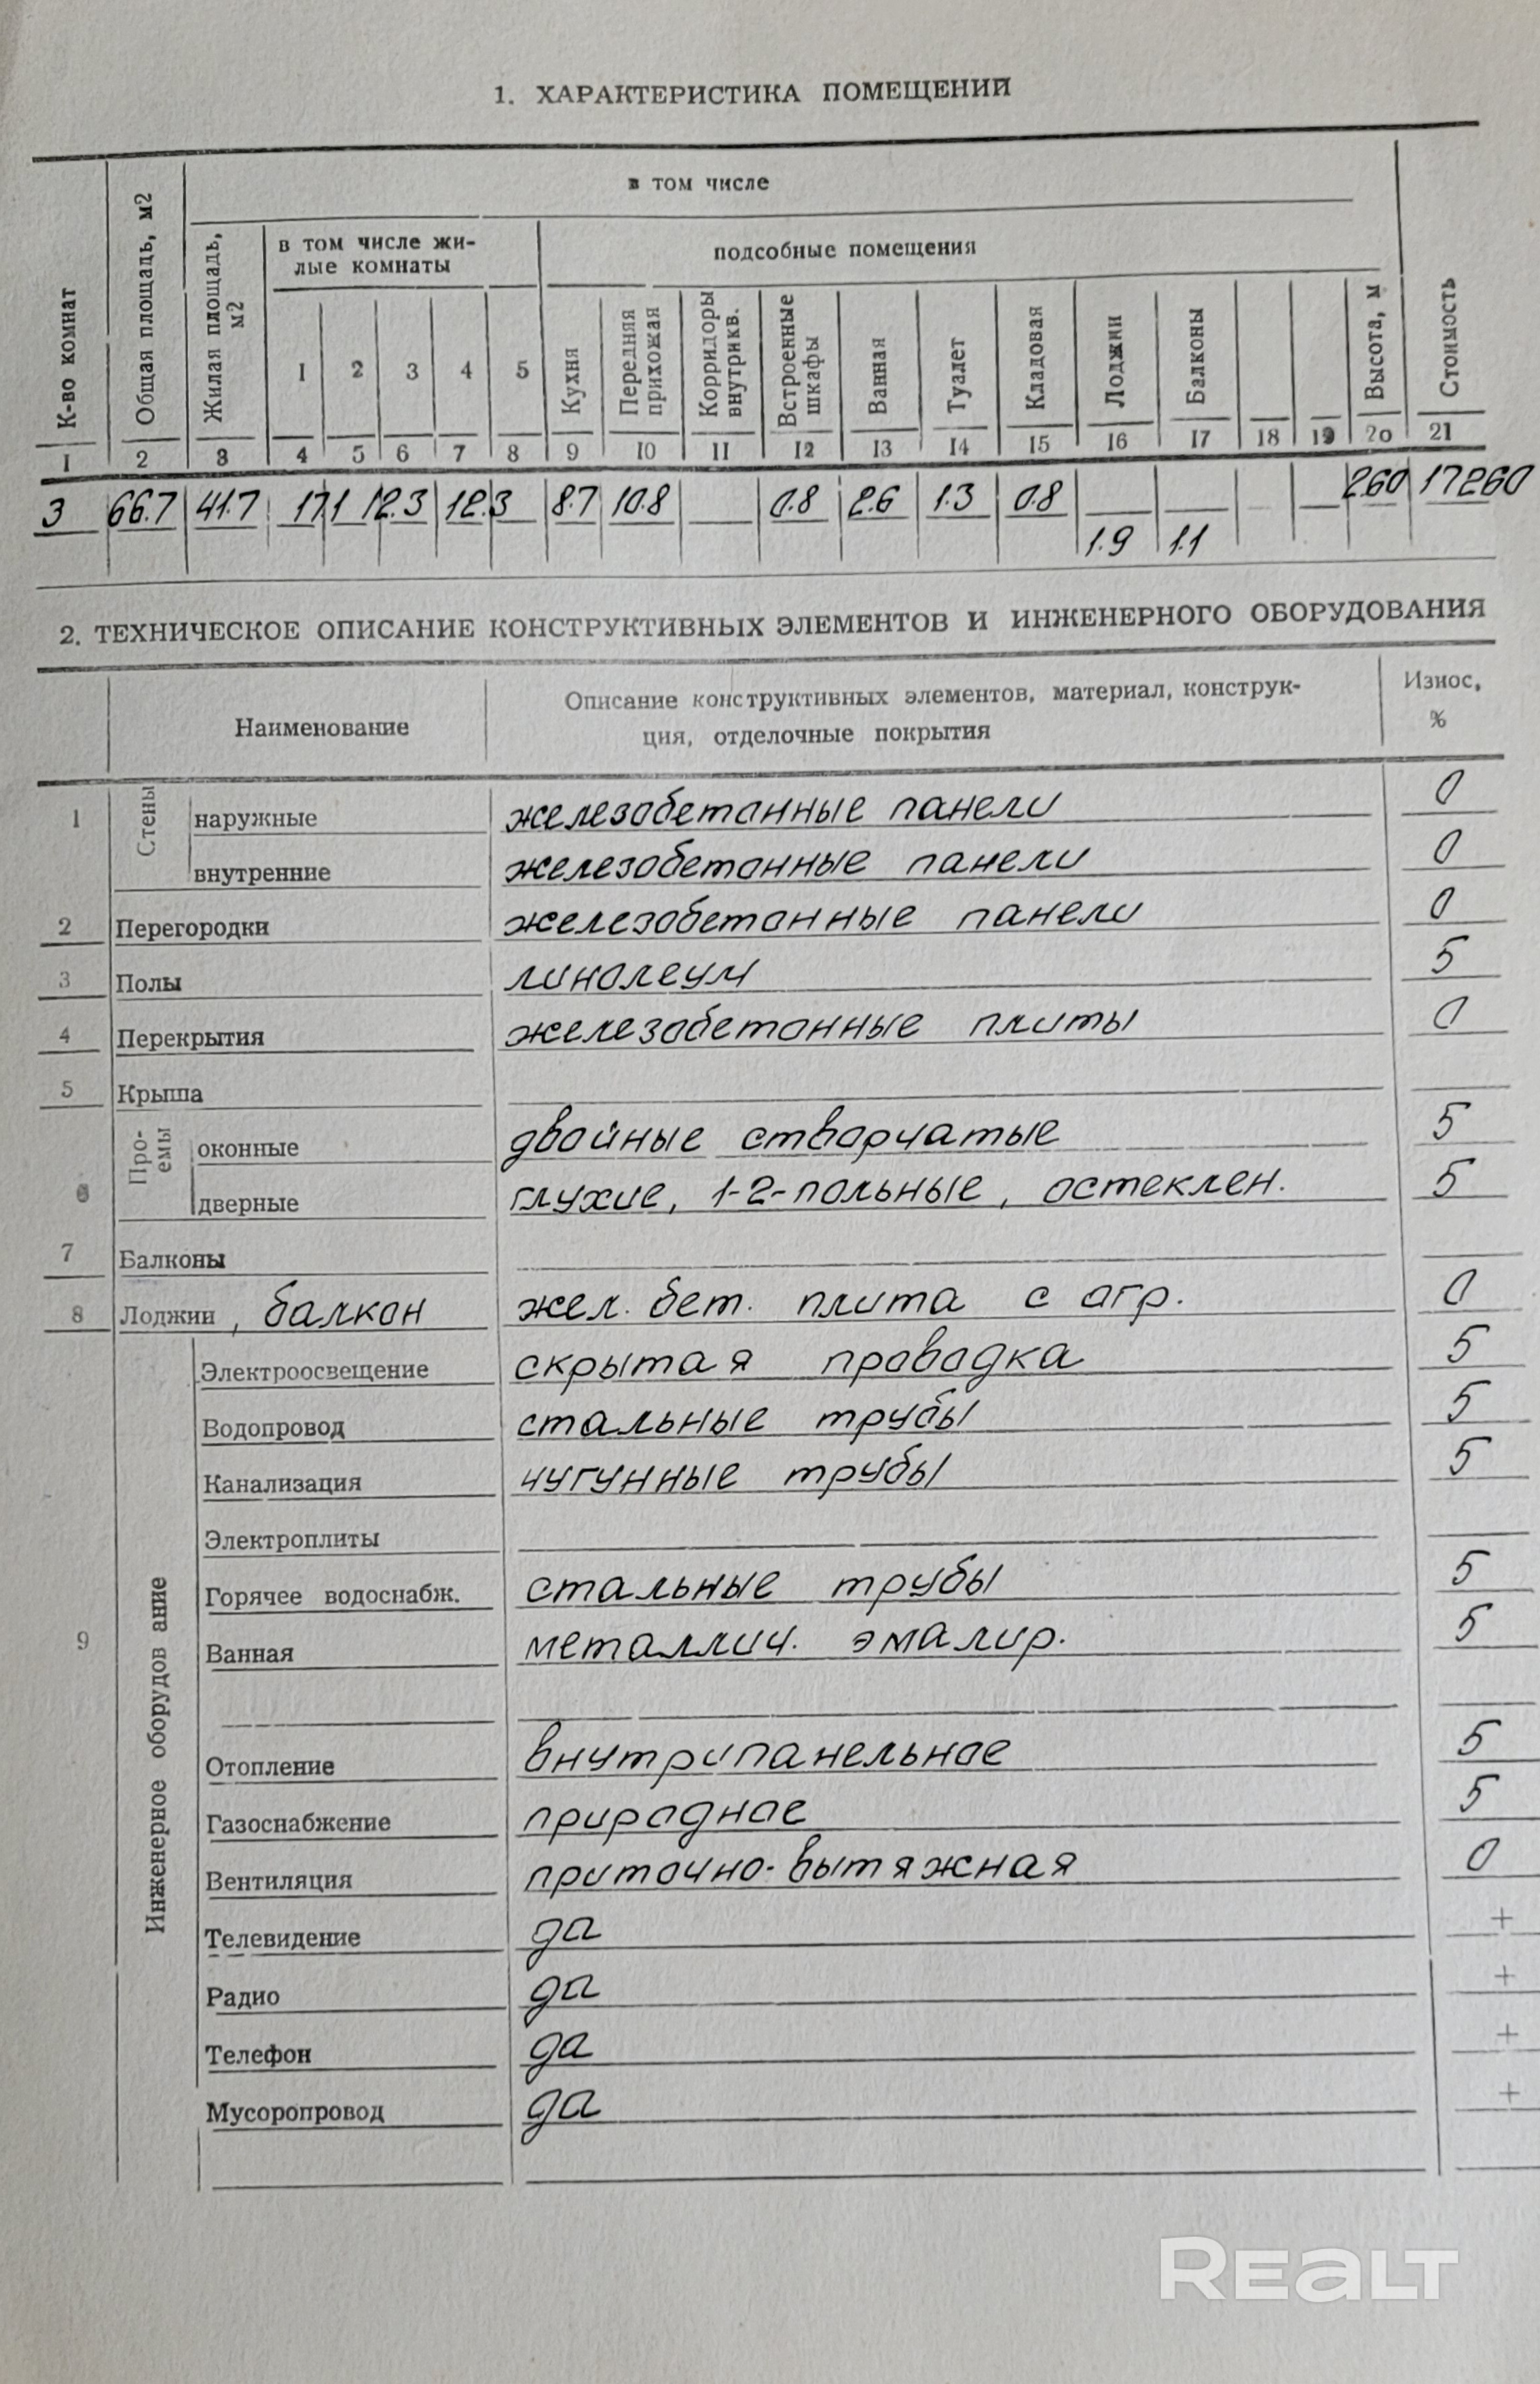 1. ХАРАКТЕРИСТИКА ПОМЕЩЕНИЙ
К-во комнат
Общая площадь, м2
в том числе
Жилая площадь, м2
в том числе жи-
лые комнаты
подсобные помещения
1 2 3 4 5
Кухня
Передняя прихожая
Корридоры внутрикв.
Встроенные шкафы
Ванная
Туалет
Кладовая
Лоджии
Балконы
Высота, м
Стоимость
1 2 3 4 5 6 7 8 9 10 11 12 13 14 15 16 17 18 19 20 21
3 66.7 41.7 17.1 12.3 12.3 8.7 10.8 0.8 2.6 1.3 0.8 2.60 17260
1.9 1.1
2. ТЕХНИЧЕСКОЕ ОПИСАНИЕ КОНСТРУКТИВНЫХ ЭЛЕМЕНТОВ И ИНЖЕНЕРНОГО ОБОРУДОВАНИЯ
Наименование
Описание конструктивных элементов, материал, конструк-
ция, отделочные покрытия
Износ,
%
1 Стены наружные железобетонные панели 0
внутренние железобетонные панели 0
2 Перегородки железобетонные панели 0
3 Полы линолеум 5
4 Перекрытия железобетонные плиты 0
5 Крыша
6 Про-
емы
оконные двойные створчатые 5
дверные глухие, 1-2-польные, остеклен. 5
7 Балконы
8 Лоджии, балкон жел. бет. плита с огр. 0
9 Инженерное оборудов ание
Электроосвещение скрытая проводка 5
Водопровод стальные трубы 5
Канализация чугунные трубы 5
Электроплиты
Горячее водоснабж. стальные трубы 5
Ванная металлич. эмалир. 5
Отопление внутрипанельное 5
Газоснабжение природное 5
Вентиляция приточно-вытяжная 0
Телевидение да +
Радио да +
Телефон да +
Мусоропровод да +
REALT